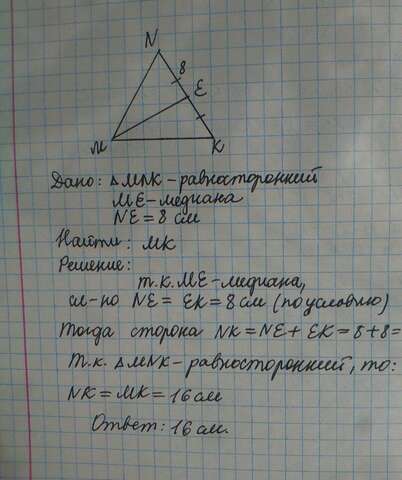 N
8
E
M
K
Дано: △MNK – равносторонний
ME – медиана
NE = 8 см
Найти: MK
Решение:
т.к. ME – медиана,
сл-но NE = EK = 8 см (по условию)
Тогда сторона NK = NE + EK = 8 + 8 =
т.к. △MNK – равносторонний, то:
NK = MK = 16 см
Ответ: 16 см.